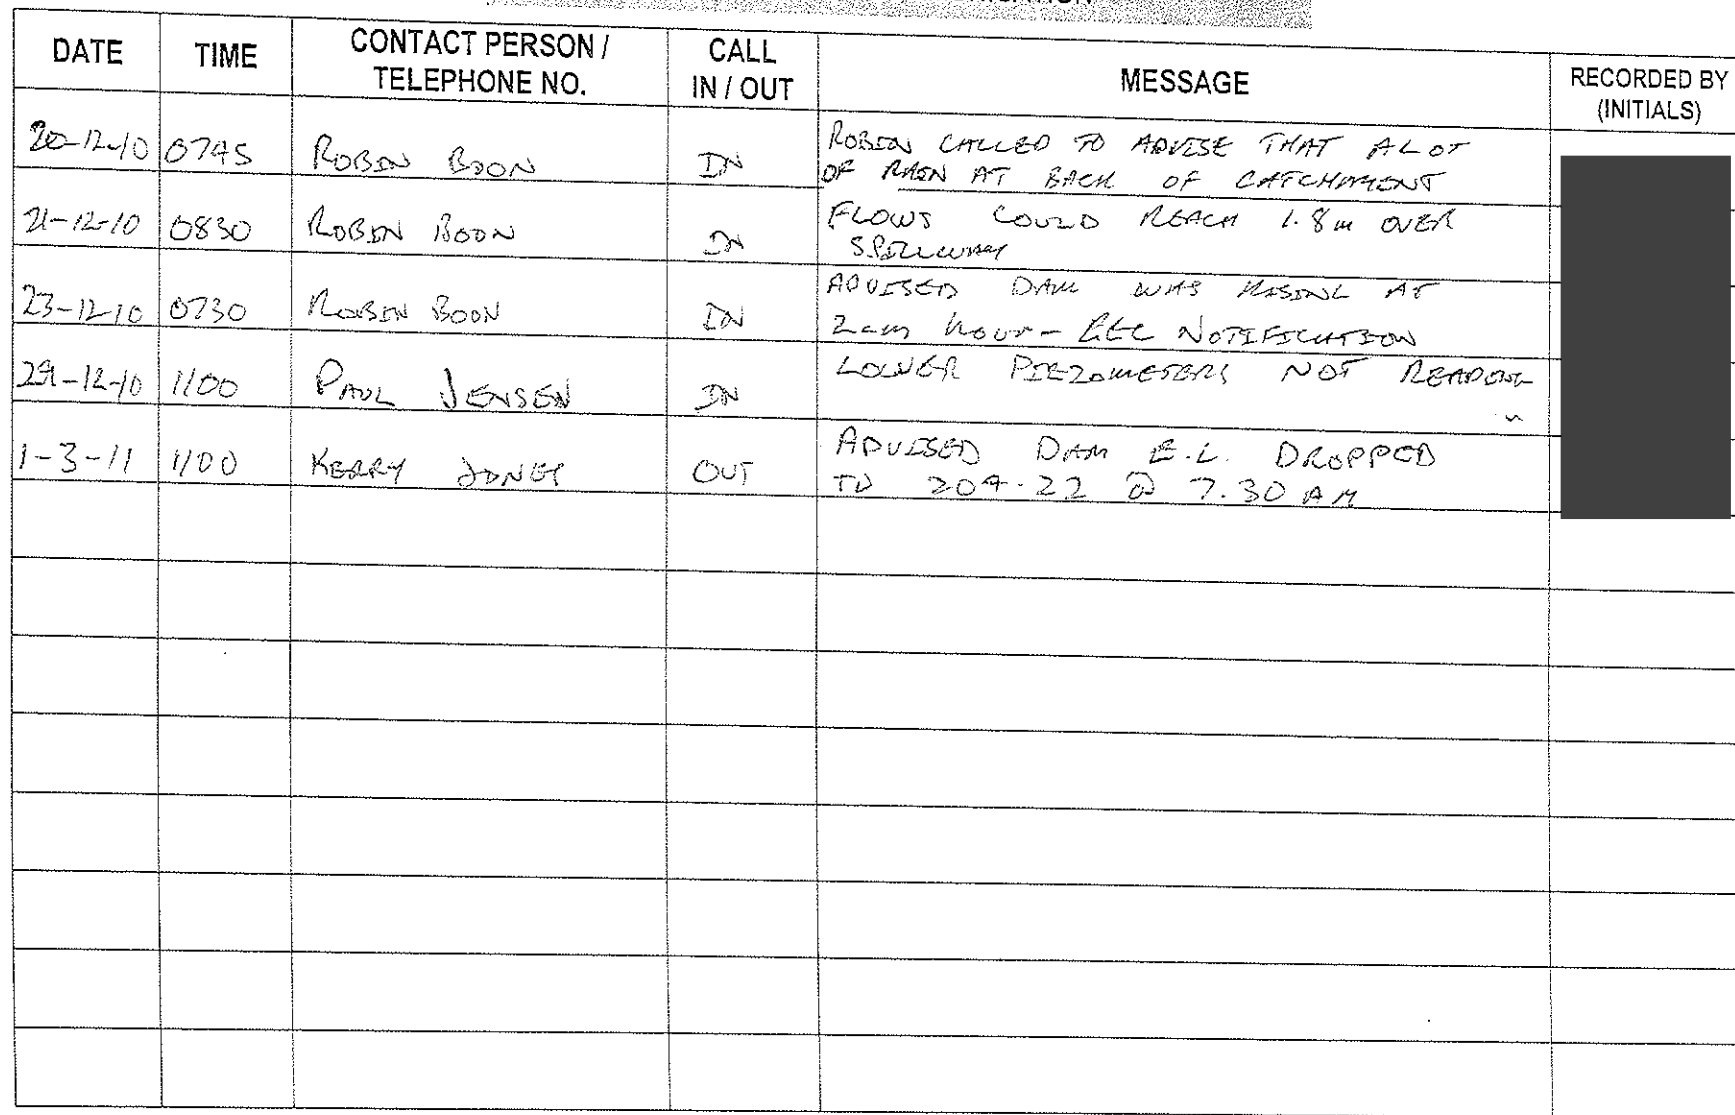 DATE TIME CONTACT PERSON / TELEPHONE NO. CALL IN / OUT MESSAGE RECORDED BY (INITIALS)
20-12-10 0745 ROBIN BOON IN ROBIN CALLED TO ADVISE THAT ALOT
OF RAIN AT BACK OF CATCHMENT
21-12-10 0830 ROBIN BOON IN FLOWS COULD REACH 1.8m OVER
SPILLWAY
23-12-10 0730 ROBIN BOON IN ADVISED DAM WAS RISING AT
2cm hour - NOTIFICATION
29-12-10 1100 PAUL JENSEN IN LOWER PIEZOMETERS NOT READING
1-3-11 1100 KERRY JONES OUT ADVISED DAM E.L. DROPPED
TO 204.22 @ 7.30 AM